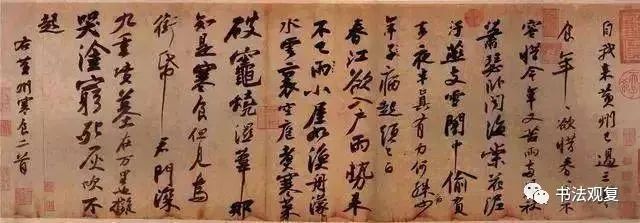 自我來黃州已過三
食年〻欲惜春
容惜今年又苦雨兩月秋
蕭瑟卧聞海棠花泥
汙燕支雪闇中偷負
去夜半真有力何殊少
年子病起頭已白
春江欲入戶雨勢來
不已雨小屋如漁舟濛〻
水雲裏空庖煮寒菜
破竈燒濕葦那
知是寒食但見烏
銜帋君門深
九重墳墓在万里也擬
哭塗窮死灰吹不
起
右黃州寒食二首
书法观复